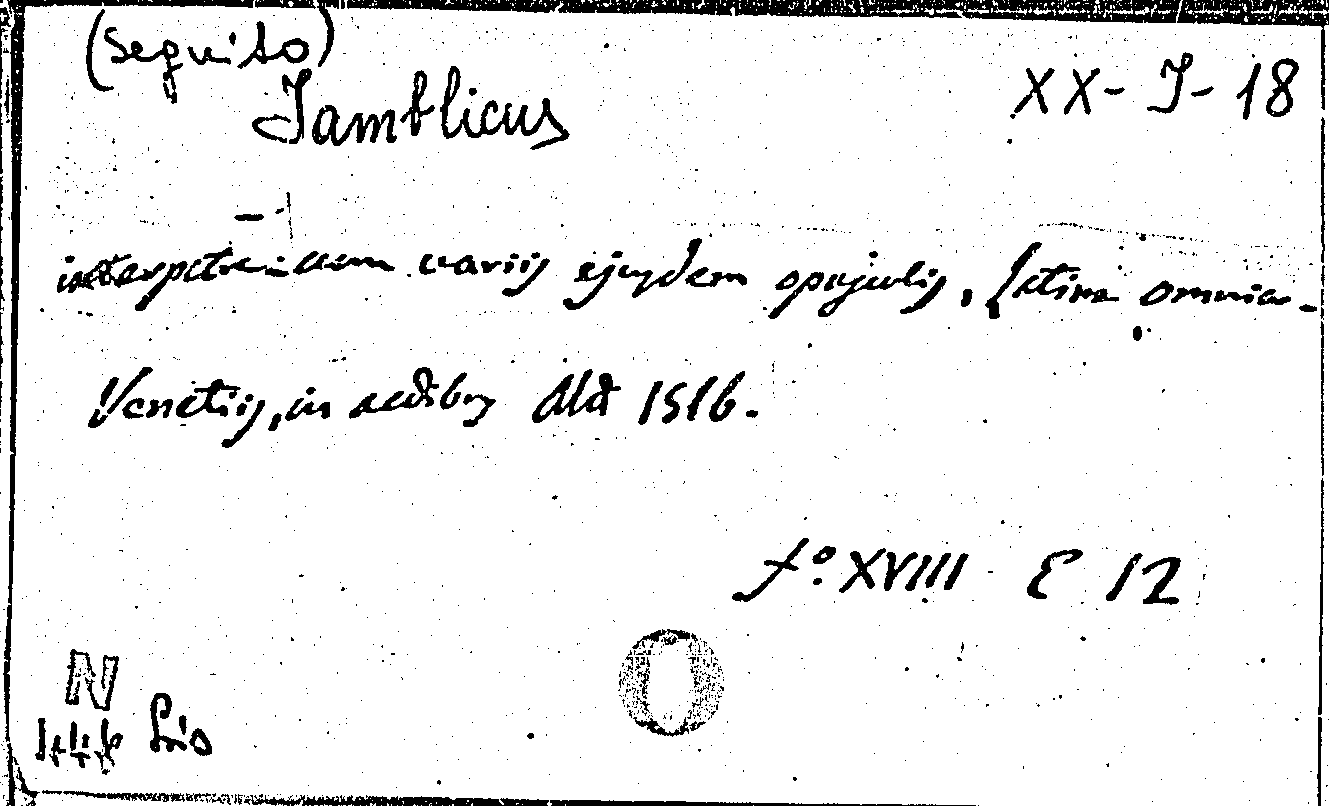 (seguito)
Iamblicus
XX- I- 18
cum variis ejusdem opusculis, Latine omnia.
Venetiis, in aedibus Aldi 1516.
f.º XVIII E 12
N